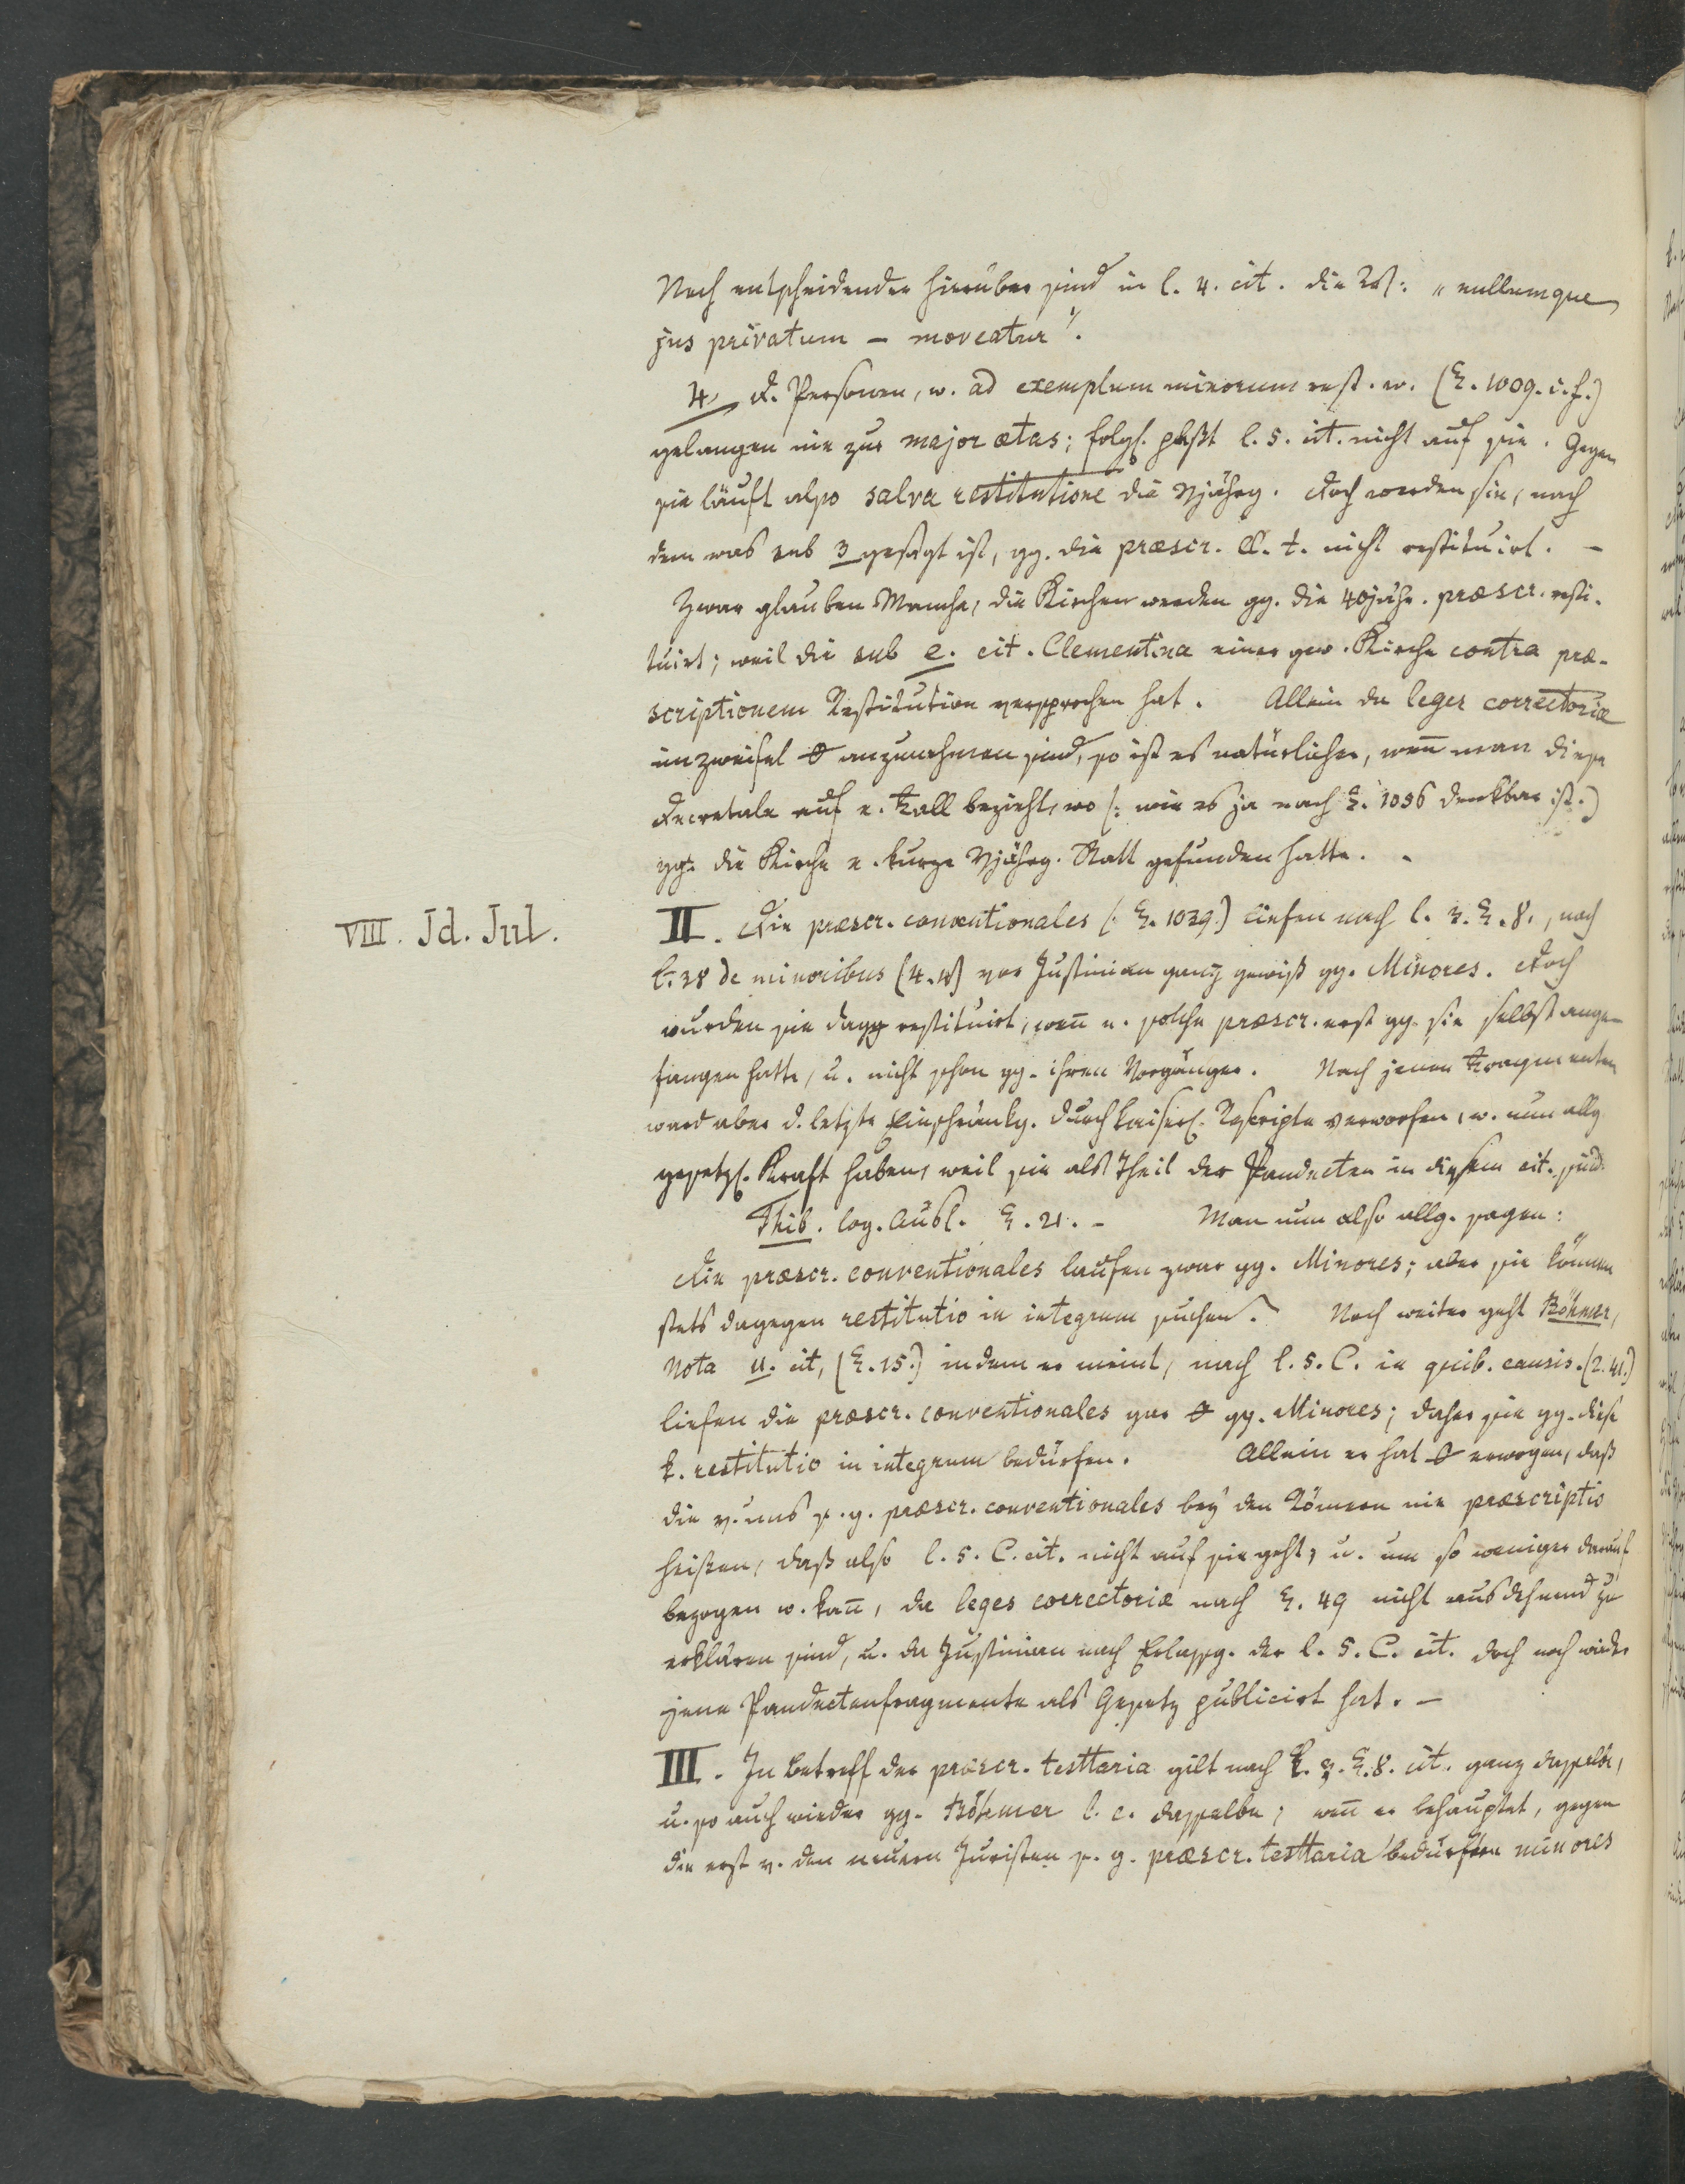 Noch entscheidender hierüber sind in l. 4. cit. die : „nullumque
jus privatum – moveatur“.
4, d. Personen, w. ad exemplum minorum rest. w. (§. 1009. i. f.)
gelangen nie zur major ætas; folgl. paßt l. 5. cit. nicht auf sie. Gegen
sie läuft also salva restitutione die Vjährg. Doch werden sie, nach
dem was sub 3 gesagt ist, gg. die præscr. l. t. nicht restituirt. –
Zwar glauben Manche, die Kirchen werden gg. die 40jähr. præscr. resti-
tuirt; weil die sub e. cit. Clementina einer gew. Kirche contra præ-
scriptionem Restitution versprochen hat. Allein da leges correctoriæ
im Zweifel anzunehmen sind, so ist es natürlicher, wen̄ man diese
Decretale auf e. Fall bezieht, wo (: wie es ja nach §. 1036 denkbar ist.)
gg. die Kirche e. kurze Vjährg. Statt gefunden hatte. –
VIII. Id. Jul.
II. Die præscr. conventionales (: §. 1039.) liefen nach l. 3. §. 8., nach
l. 38 de minoribus (4. 4) vor Justinian ganz gewiß gg. Minores. Doch
wurden sie dagg restituirt, wen̄ e. solche præscr. erst gg. sie selbst ange-
fangen hatte, u. nicht schon gg. ihren Vorgänger. Nach jenen Fragmenten
ward aber d. letzte Einschränkg. durch kaiserl. Rescripte verworfen, w. nun allg
gesetzl. Kraft haben, weil sie als Theil der Pandecten in diesem cit. sind.
Thib. log. Ausl. §. 21. – Man nun also allg. sagen:
Die præscr. conventionales laufen zwar gg. Minores; aber sie können
stets dagegen restitutio in integrum suchen. Noch weiter geht Böhmer,
Nota u. cit, (§. 15.) indem er meint, nach l. 5. C. in quib. causis. (2. 41.)
liefen die præscr. conventionales gar gg. Minores; daher sie gg. diese
k. restitutio in integrum bedürfen. Allein er hat erwogen, daß
die v. uns s. g. præscr. conventionales bey den Römern nie præscriptio
heißen, daß also l. 5. C. cit. nicht auf sie geht, u. um so weniger darauf
bezogen w. kan̄, da leges correctoriæ nach §. 49 nicht ausdehnend zu
erklären sind, u. da Justinian nach Erlassg. der l. 5. C. cit. doch noch wieder
jene Pandectenfragmente als Gesetz publicirt hat. –
III. In Betreff der præscr. testtaria gilt nach l. 3. §. 8. cit. ganz dasselbe,
u. so auch wieder gg. Böhmer l. c. dasselbe; wen̄ er behauptet, gegen
die erst v. den neuern Juristen s. g. præscr. testtaria bedürften minores